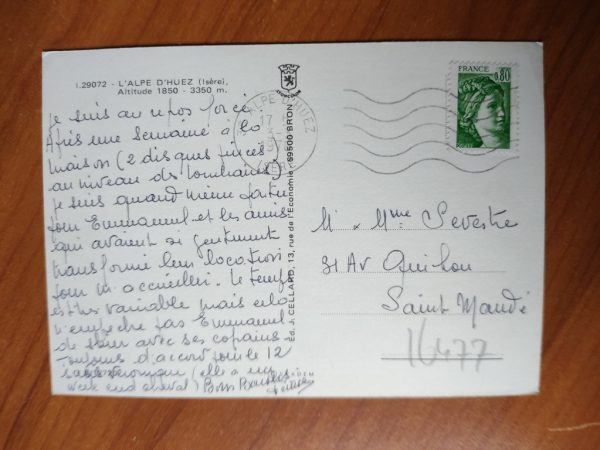 I.29072 - L'ALPE D'HUEZ (Isère),
Altitude 1850 - 3350 m.
Je suis au repos forcé.
Après une semaine à la
maison (2 disques pincés
au niveau des lombaires)
je suis quand même partie
pour Emmanuel et les amis
qui avaient si gentiment
transformé leur location
pour m'accueillir. Le temps
est très variable mais cela
n'empêche pas Emmanuel
de skier avec ses copains.
Toujours d'accord pour le 12
sans (elle a un
week end cheval) Bons Baisers
Ed. J. CELLARD, 13, rue de l'Economie - 69500 BRON
L'ALPE D'HUEZ
17
FRANCE
0,80
M. & Mme Sevestre
31 Av Quihou
Saint Mandé
16477